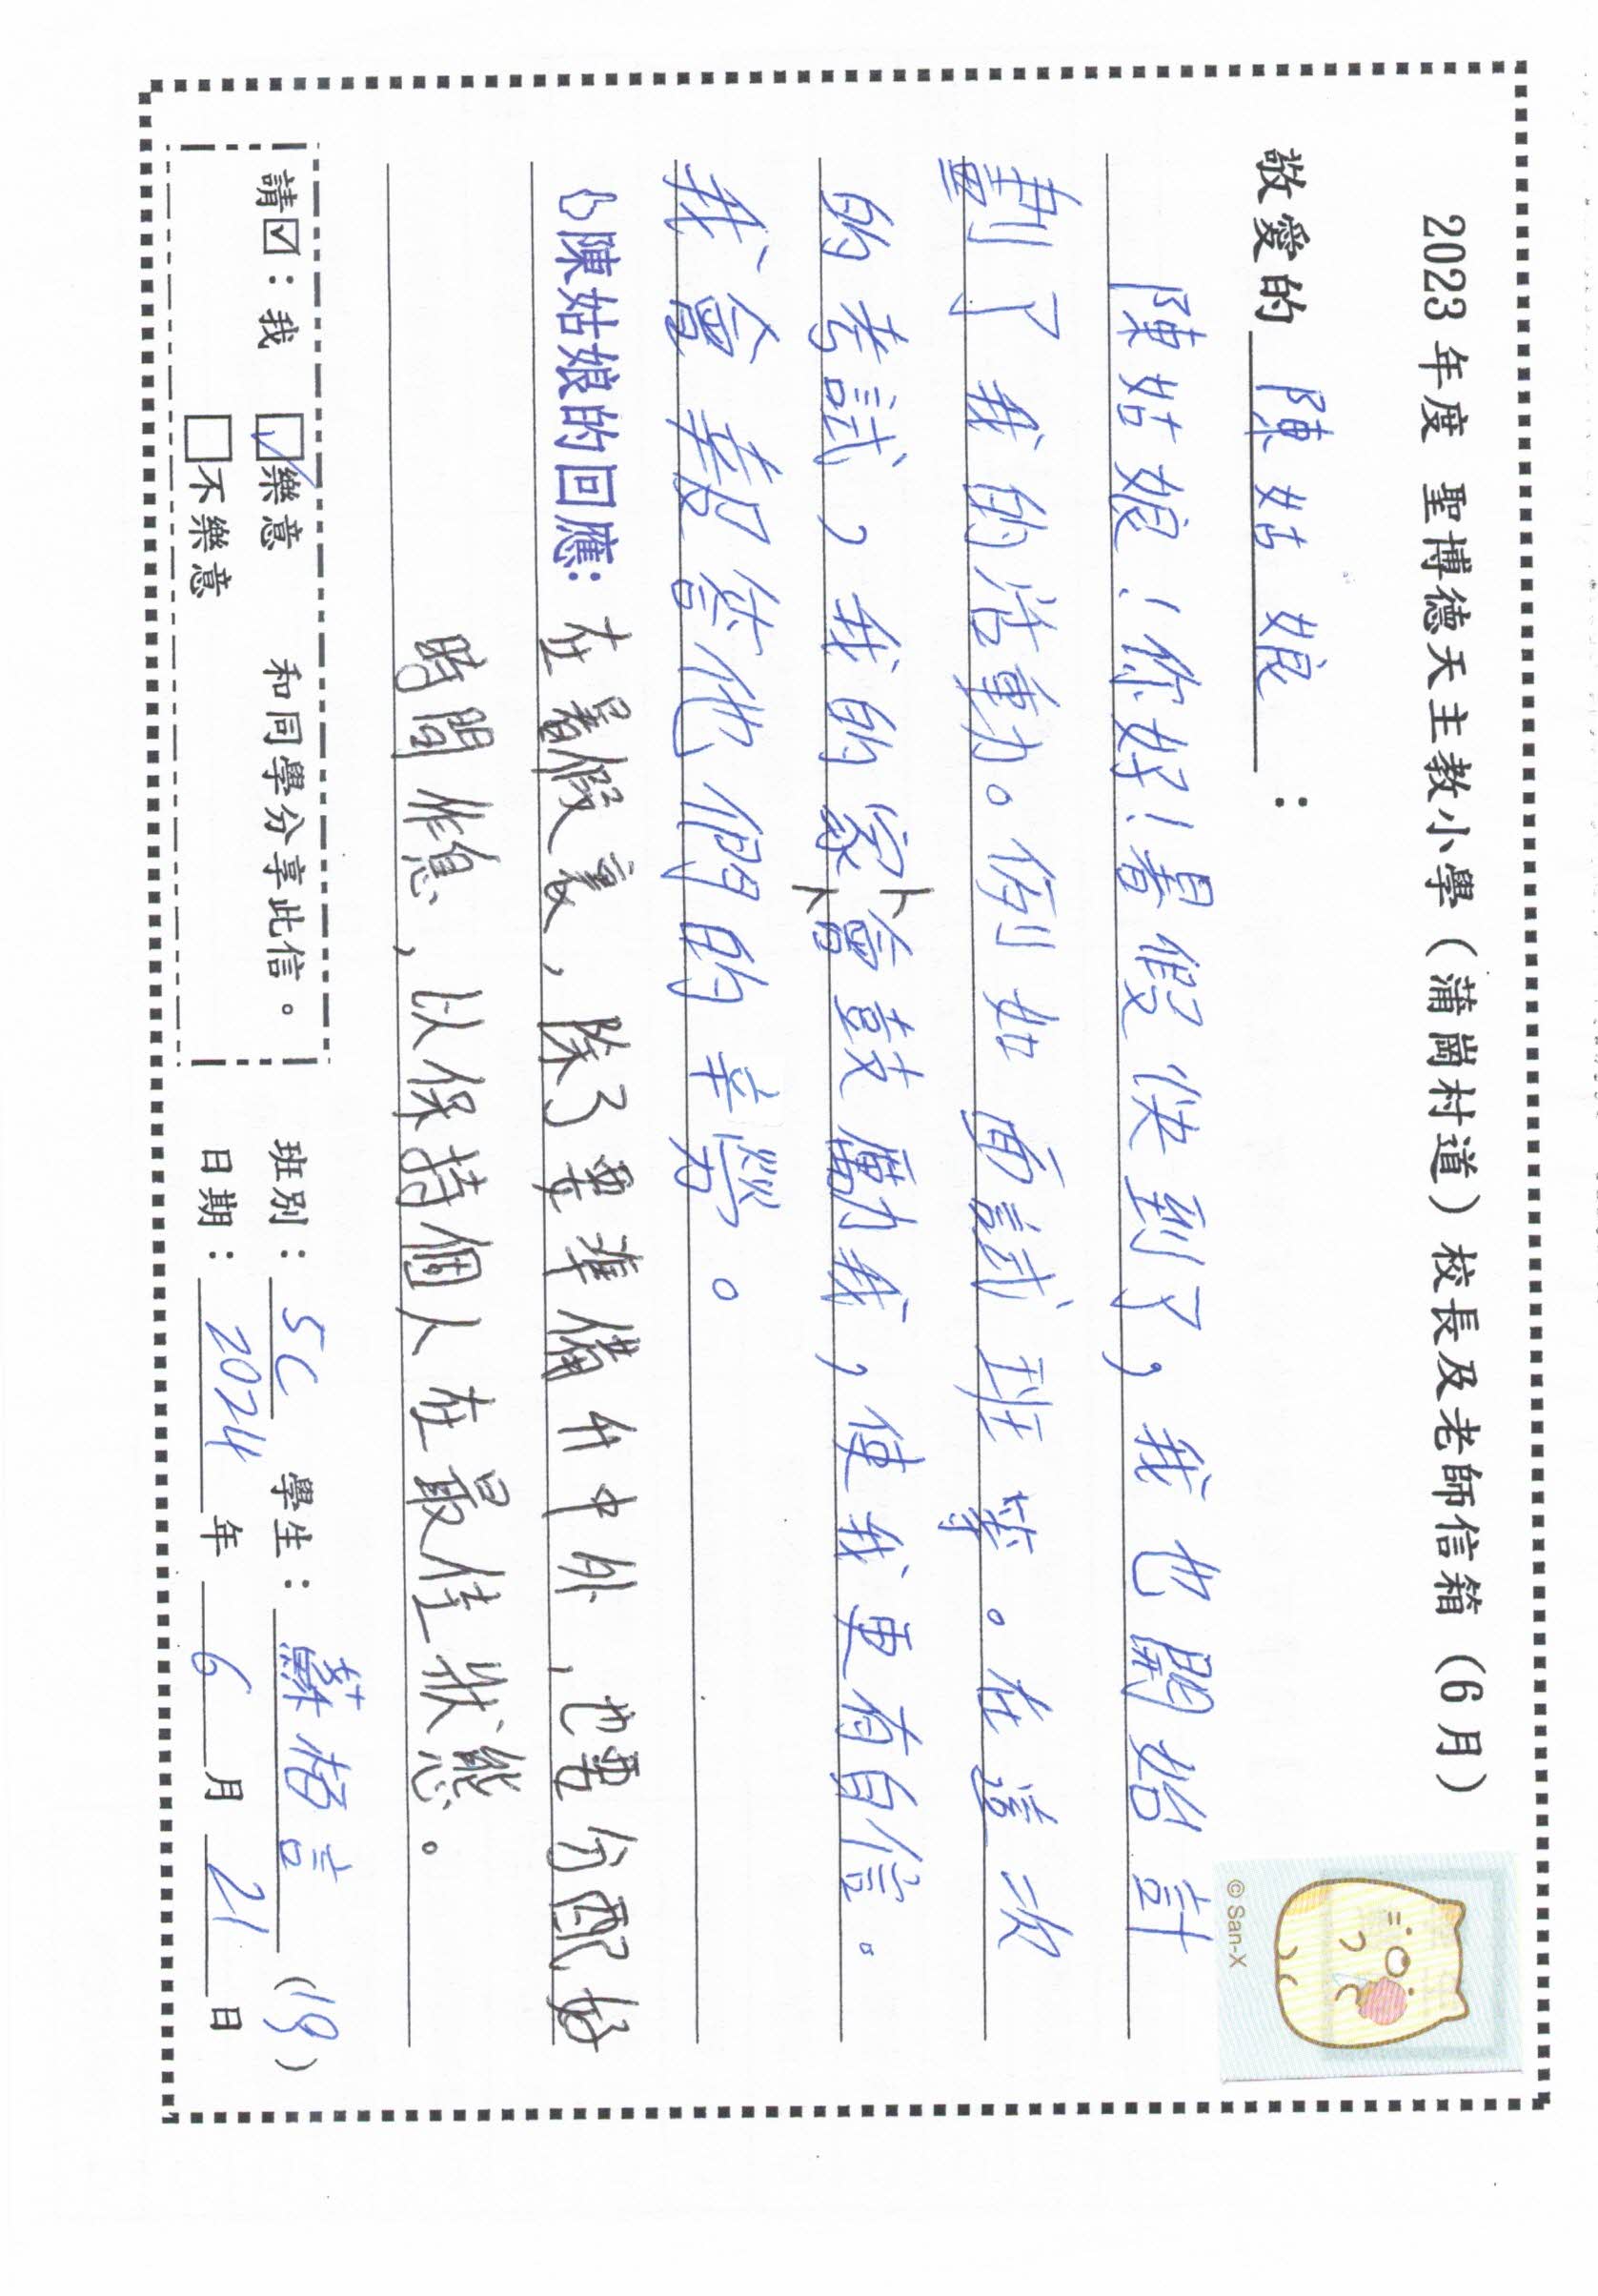 2023年度 聖博德天主教小學（蒲崗村道）校長及老師信箱（6月）
© San-X
敬愛的 陳姑娘 ：
陳姑娘！你好！暑假快到了，我也開始計
劃了我的活動。例如面試班等。在這次
的考試，我的家人會鼓勵我，使我更有自信。
我會報答他們的辛勞。
陳姑娘的回應：在暑假裏，除了要準備升中外，也要分配好
時間作息，以保持個人在最佳狀態。
請☑：我 ☑樂意 和同學分享此信。
☐不樂意
班別：5C 學生：蘇栢言 (19)
日期：2024年6月21日